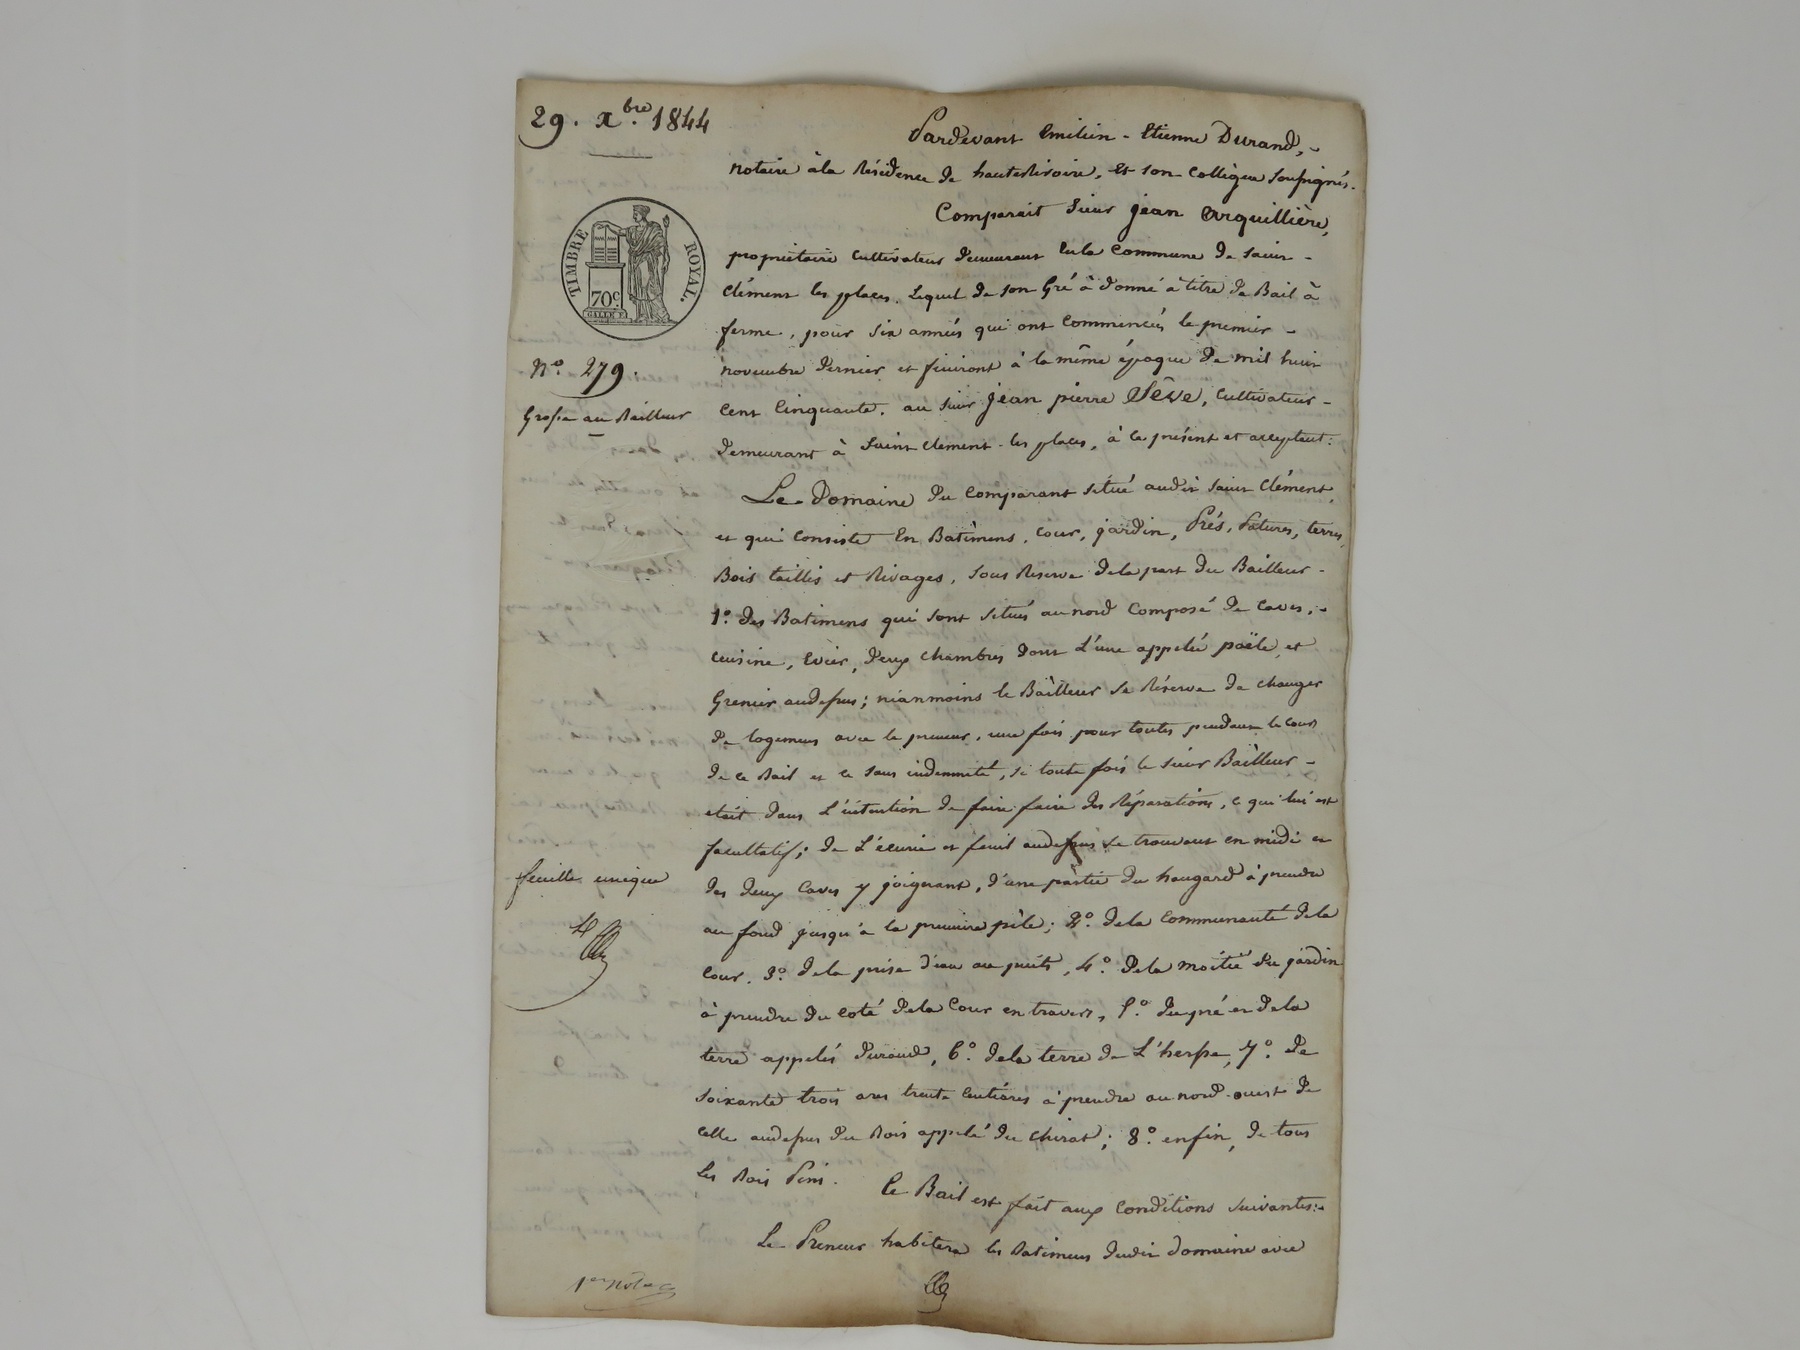 29. Xbre. 1844
Pardevant Emilien - Etienne Durand, -
notaire à la Résidence de hauteRivoire, et son Collègue soussignés.
Comparait Sieur jean Arquillière,
propriétaire cultivateur demeurant en la Commune de saint -
clément les places. Lequel de son Gré à donné à titre de Bail à
ferme, pour six années qui ont commencées le premier -
novembre dernier et finiront à la même époque de mil huit
cent Cinquante. au sieur jean pierre Sêve, Cultivateur -
demeurant à Saint clément - les places, à ce présent et acceptant:
TIMBRE ROYAL.
70c.
Nº. 279.
Grosse au Bailleur
Le Domaine du Comparant situé audit saint Clément,
et qui Consiste En Batimens, Cour, jardin, Prés, Patures, terres,
Bois taillis et Rivages, sous Reserve de la part du Bailleur -
1º. des Batimens qui sont situés au nord Composé de Caves, -
Cuisine, Evier, deux chambres dont L'une appelée poële, et
Grenier audessus; nianmoins le Bailleur se Réserve de changer
de logemens avec le preneur, une fois pour toutes pendant le cours
de ce Bail et ce sans indemnité, si toute fois le sieur Bailleur -
etait dans L'intention de faire faire des Réparations, ce qui lui est
facultatif; de L'écurie et fenil audessus se trouvant en midi et
des deux Caves y joignant, d'une partie du hangard à prendre
au fond jusqu'à la premiere pile; 2º. de la Communauté de la
Cour. 3º. de la prise d'eau au puits, 4º. de la moitié du jardin
à prendre du coté de la Cour en travers, 5º. du pré et de la
terre appelés durand, 6º. de la terre de L'herse, 7º. de
soixante trois ares trente Centiares à prendre au nord-ouest de
celle audessus du Bois appelé du chirat; 8º. enfin, de tous
les Bois Pins. Ce Bail est fait aux Conditions suivantes: -
Le Preneur habitera les Batimens dudit domaine avec
feuille unique